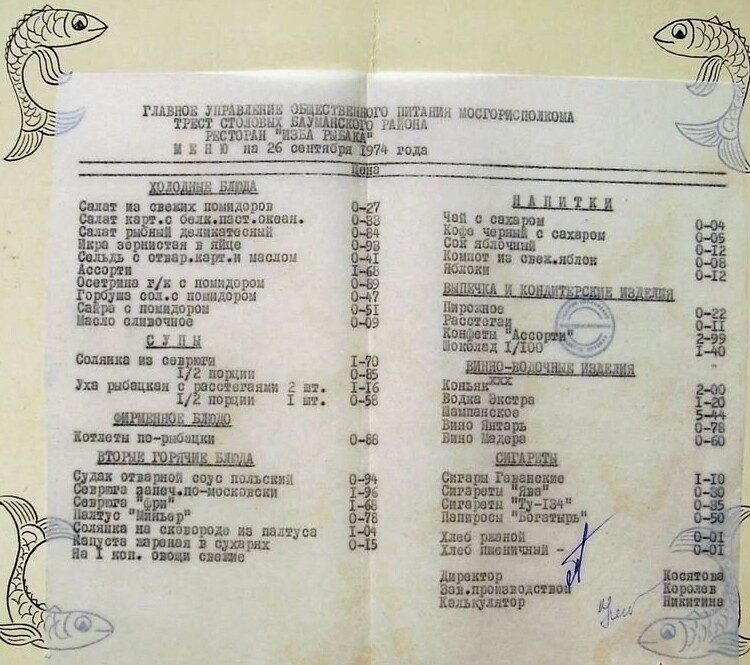 ГЛАВНОЕ УПРАВЛЕНИЕ ОБЩЕСТВЕННОГО ПИТАНИЯ МОСГОРИСПОЛКОМА
ТРЕСТ СТОЛОВЫХ БАУМАНСКОГО РАЙОНА
РЕСТОРАН "ИЗБА РЫБАКА"
МЕНЮ на 26 сентября 1974 года
Цена
ХОЛОДНЫЕ БЛЮДА
Салат из свежих помидоров 0-27
Салат карт.с белк.паст.океан. 0-38
Салат рыбный деликатесный 0-84
Икра зернистая в яйце 0-98
Сельдь с отвар.карт.и маслом 0-41
Ассорти 1-68
Осетрина г/к с помидором 0-89
Горбуша сол.с помидором 0-47
Сайра с помидором 0-51
Масло сливочное 0-09
СУПЫ
Солянка из севрюги 1-70
1/2 порции 0-85
Уха рыбацкая с расстегаями 2 шт. 1-16
1/2 порции 1 шт. 0-58
ФИРМЕННОЕ БЛЮДО
Котлеты по-рыбацки 0-88
ВТОРЫЕ ГОРЯЧИЕ БЛЮДА
Судак отварной соус польский 0-94
Севрюга запеч.по-московски 1-96
Севрюга "фри" 1-68
Палтус "Миньер" 0-78
Солянка на сковороде из палтуса 1-04
Капуста жареная в сухарях 0-15
На 1 коп. овощи свежие
НАПИТКИ
Чай с сахаром 0-04
Кофе черный с сахаром 0-05
Сок яблочный 0-12
Компот из свеж.яблок 0-08
Яблоки 0-12
ВЫПЕЧКА И КОНДИТЕРСКИЕ ИЗДЕЛИЯ
Пирожное 0-22
Расстегаи 0-11
Конфеты "Ассорти" 2-99
Шоколад 1/100 1-40
ВИННО-ВОДОЧНЫЕ ИЗДЕЛИЯ
Коньяк ххх 2-00
Водка Экстра 1-20
Шампанское 5-44
Вино Янтарь 0-78
Вино Мадера 0-60
СИГАРЕТЫ
Сигары Гаванские 1-10
Сигареты "Ява" 0-30
Сигареты "Ту-134" 0-35
Папиросы "Богатырь" 0-50
Хлеб ржаной 0-01
Хлеб пшеничный - 0-01
Директор Косятова
Зав.производством Королев
Калькулятор Никитина